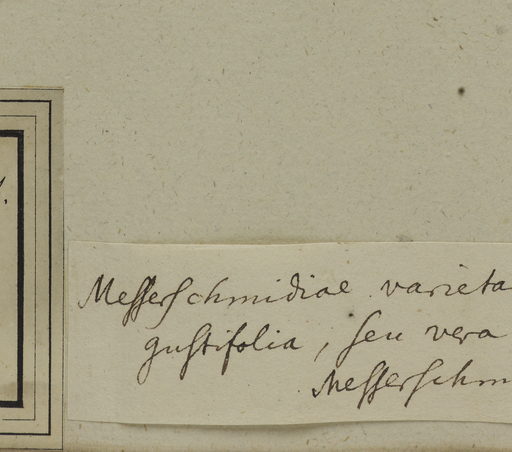 Messerschmidiae varieta
gustifolia, seu vera
Messerschm